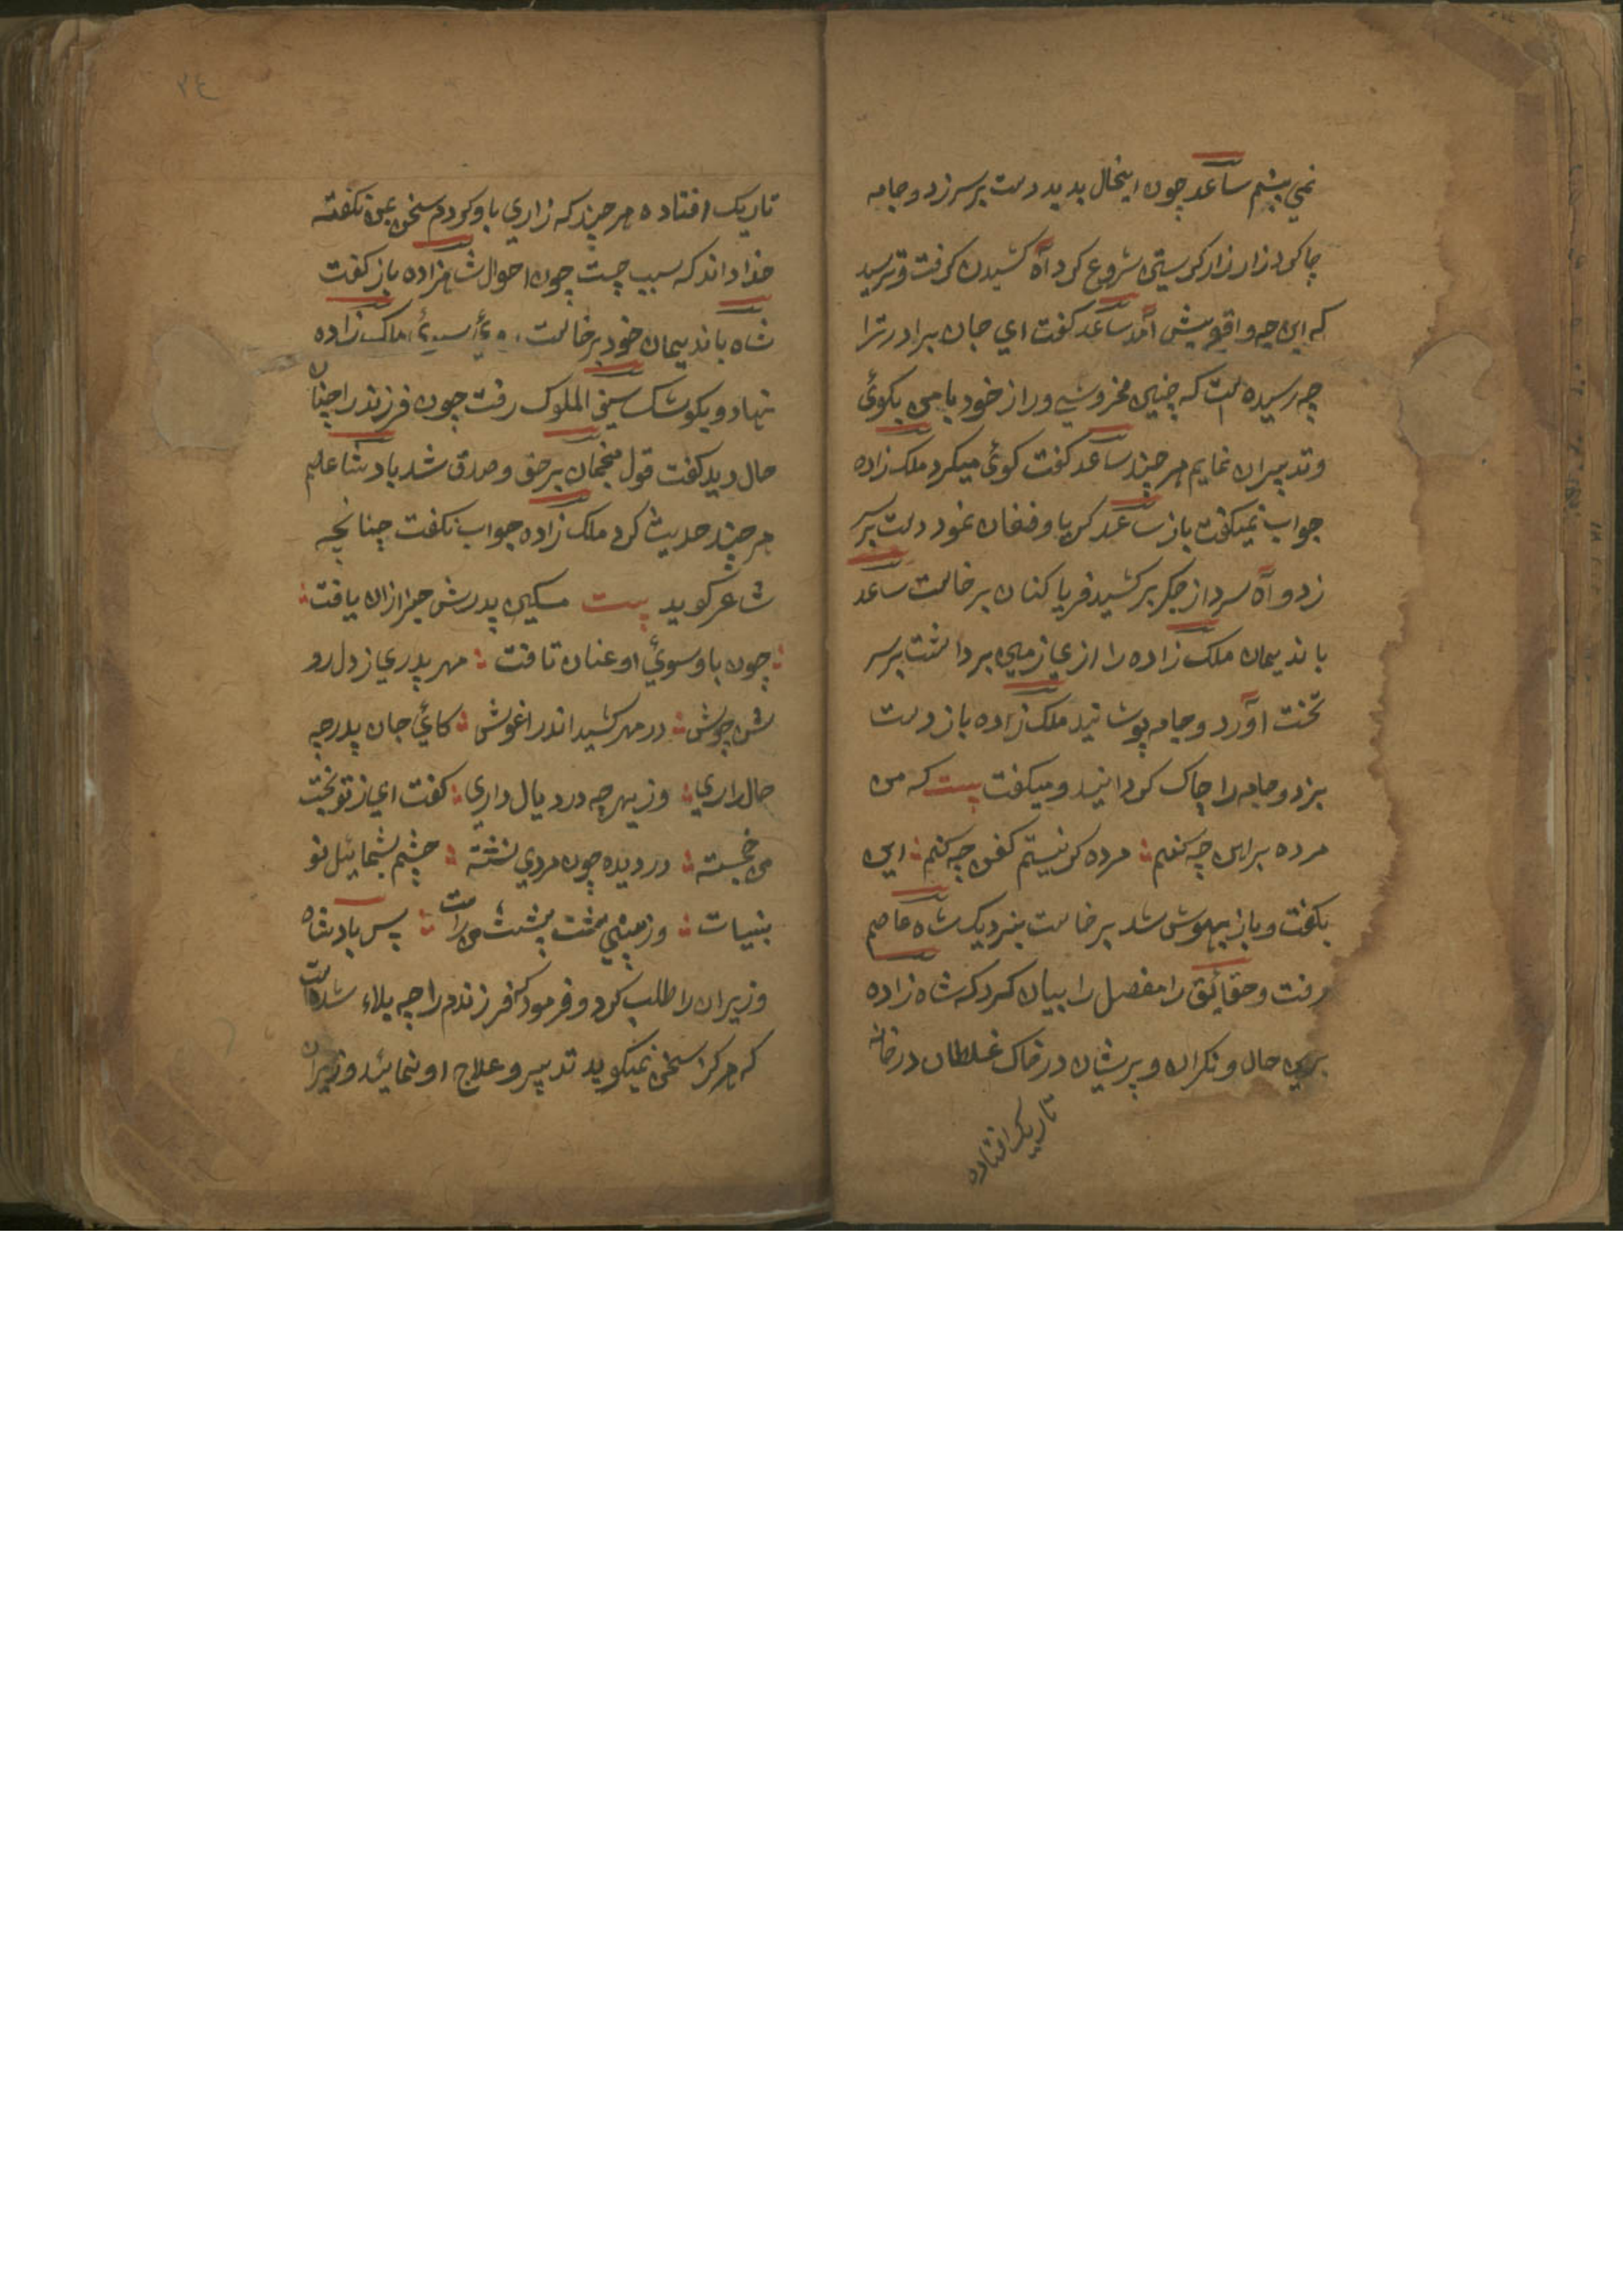 نمی بینم ساعد چون اینحال بدید دست بر سر زد و جامه
چاک کرد زار زار کریستن شروع کرد آه کشیدن کرفت و ترسید
که این چه واقع پیش آمد ساعد کفت ای جان برادر ترا
چه رسیده است که چنین مخروشی و راز خود با من بکوئ
و تدبیر آن نمایم هر چند ساعد کفت کوئ میکرد ملک زاده
جواب نمیکفت باز ساعد کریا و فغان نمود دست بر سر
زد و آه سرد از جکر بر کشید فریا کنان بر خاست ساعد
با ندیمان ملک زاده را از زمین برداشت بر سر
تخت آورد و جامه پوشانید ملک زاده باز دست
بزد و جامه را چاک کردانید و میکفت بیت که من
مرده پیراهن چه کنم مرده کر نیستم کفن چه کنم این
بکفت و باز بیهوش شد بر خاست بنزدیک شاه عاصم
رفت و حقائیق را مفصل را بیان کرد که شاه زاده
برین حال و نکران و پریشان در خاک غلطان در خانه
تاریک افتاده
٢٤
تاریک افتاده هر چند که زاری با و کردم سخن بمن نکفته
خدا داند که سبب چیست چون احوال شاهزاده باز کفت
شاه با ندیمان خود بر خاست روئ سوئ ملک زاده
نهاد و بکوشک سیف الملوک رفت چون فرزند را چنان
حال دید کفت قول منجمان بر حق و صدق شد بادشا عاصم
هر چند حدیث کرد ملک زاده جواب نکفت چنانچه
شاعر کوید بیت مسکین پدرش خبر ازان یافت
چون باو سوئ او عنان تافت مهر پدری از دل رو
شن جوش در مهر کشید اندر اغوش کائ جان پدر چه
حال داری وز بهر چه درد یال داری کفت ای از تو بخت
من خجسته در دیده چون مردی نشته چشم بشمائیل تو
بنیات وز بینی تست پشت من راست پس بادشاه
وزیران را طلب کرد و فرمود که فرزندم را چه بلاء شده است
که هرکز سخن نمیکوید تدبیر و علاج او نمائید وزیران